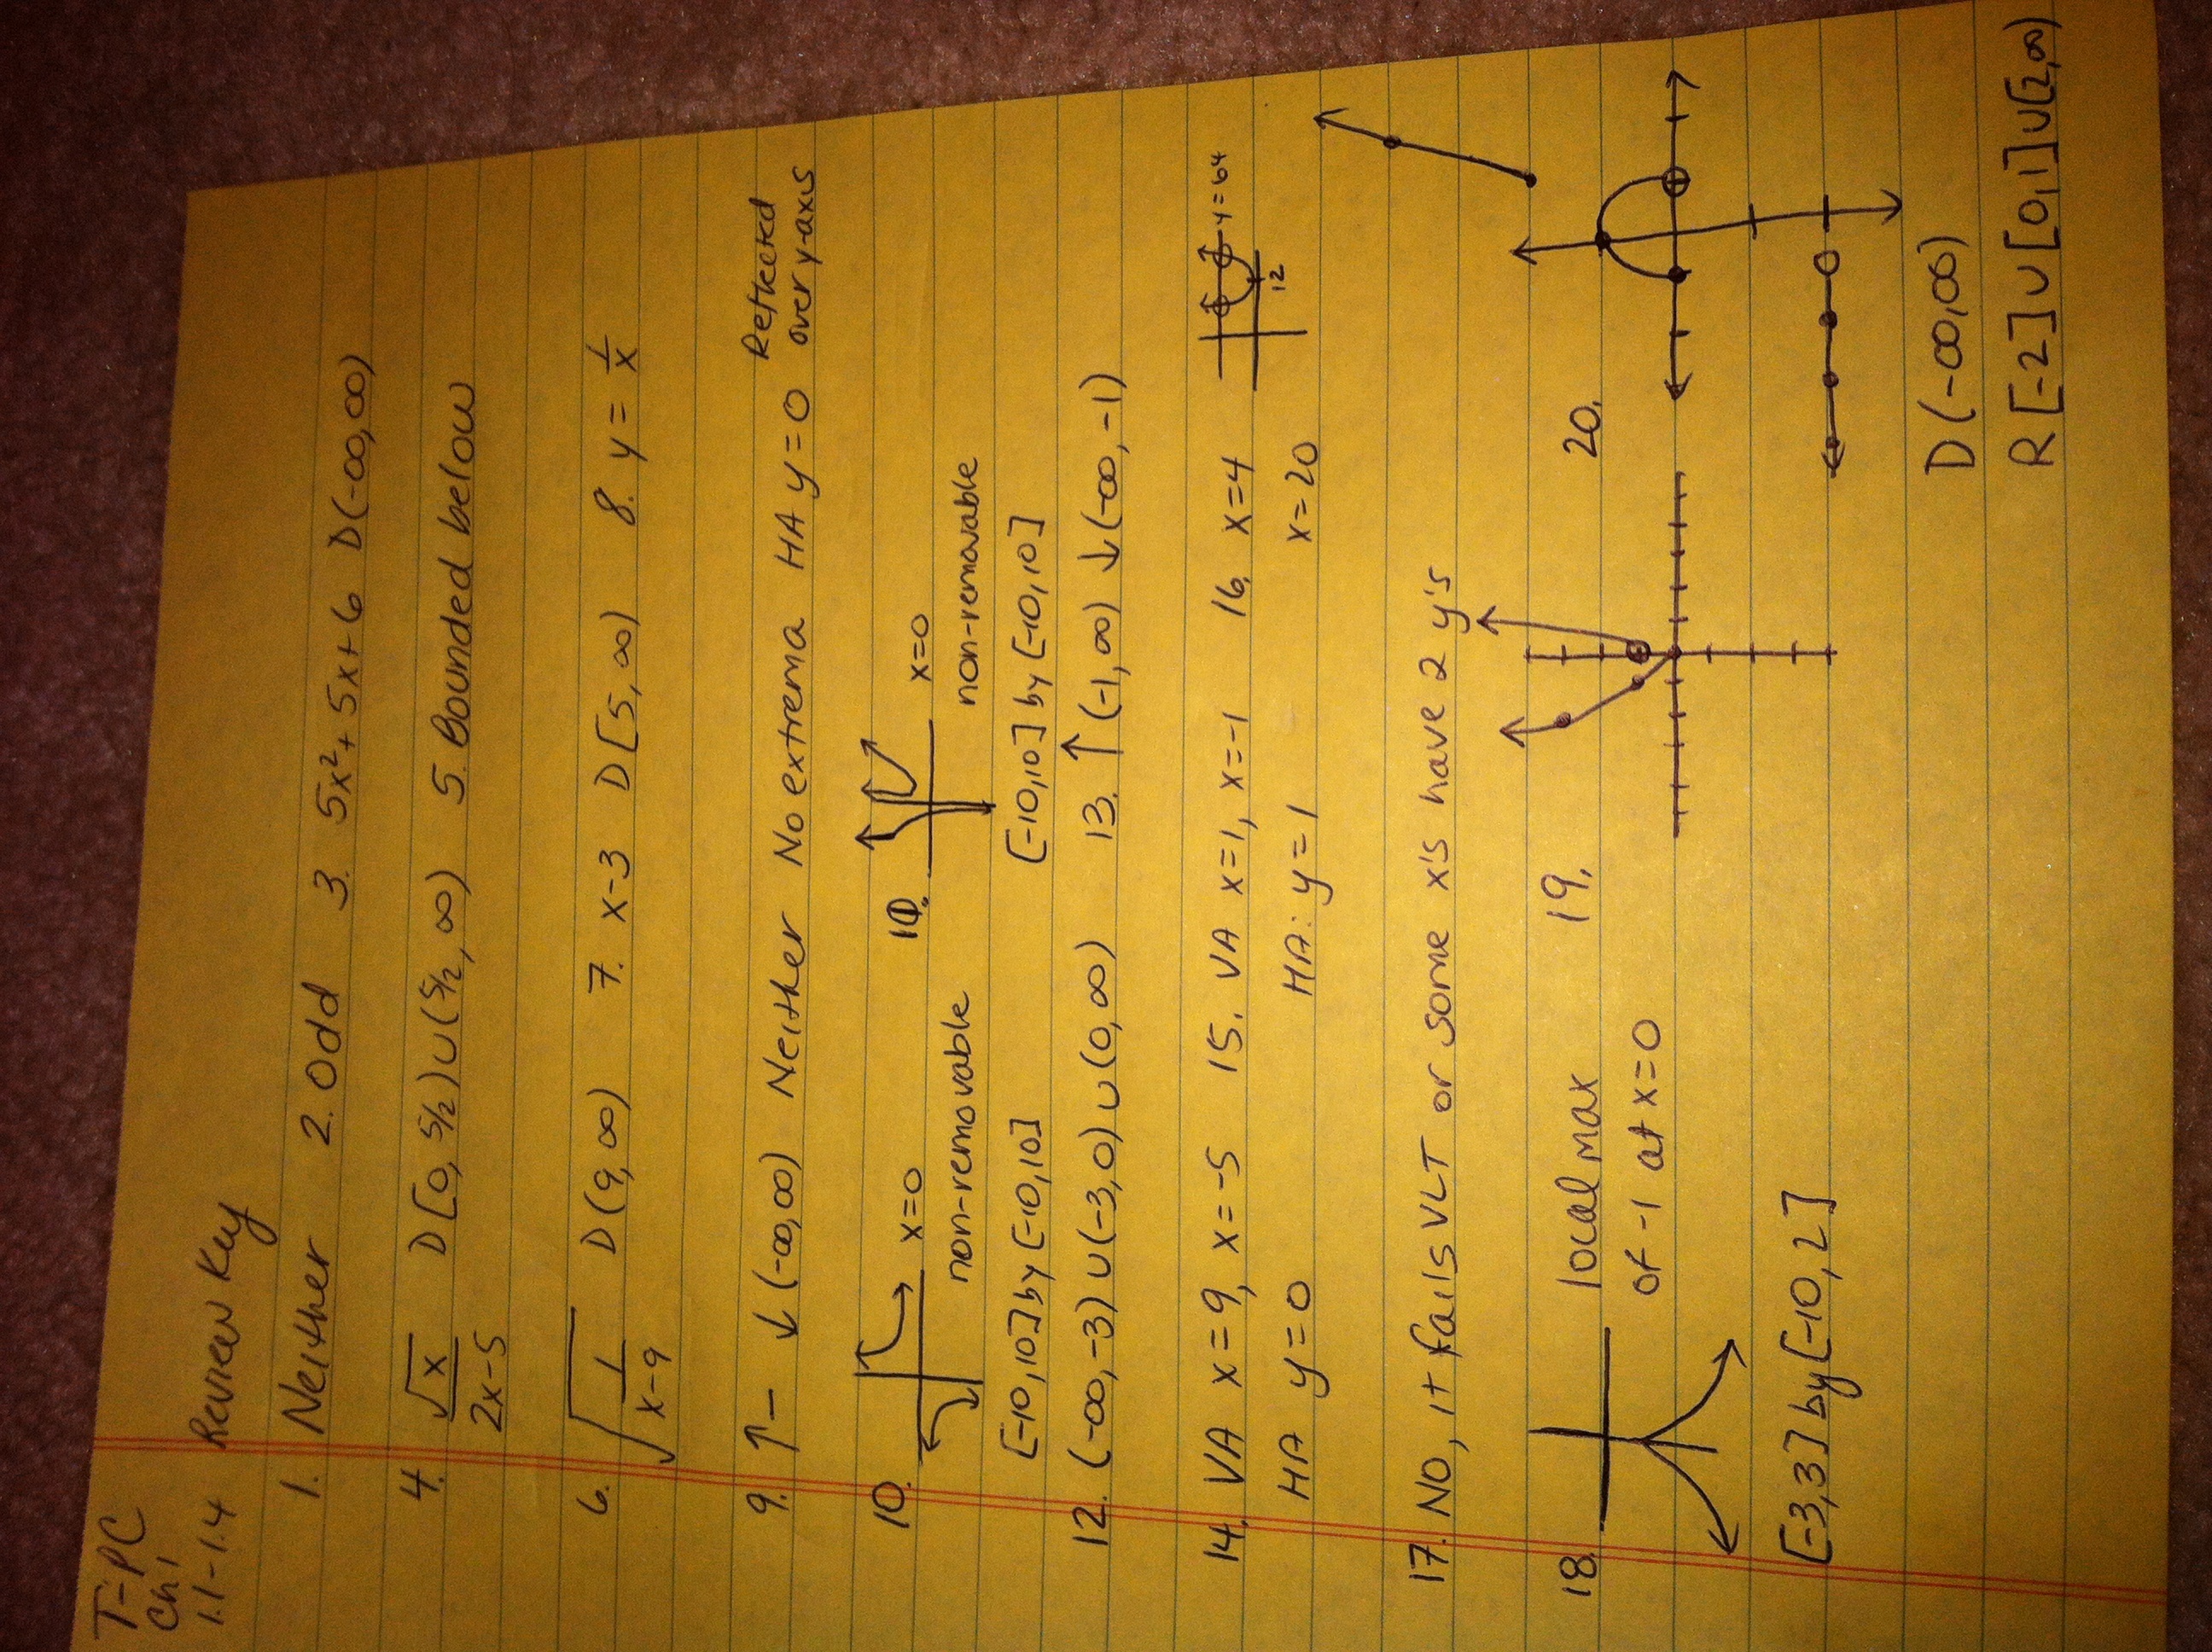 T-PC
Ch 1
1.1-1.4 Review Key
1. Neither 2. Odd 3. 5x²+5x+6 D(-∞,∞)
4. √x/(2x-5) D[0, 5/2)∪(5/2, ∞) 5. Bounded below
6. √(1/(x-9)) D(9,∞) 7. x-3 D[5,∞) 8. y=1/x
9. ↑- ↓(-∞,∞) Neither No extrema HA y=0 Reflected
over y-axis
10. x=0 11. x=0
non-removable non-removable
[-10,10] by [-10,10] [-10,10] by [-10,10]
12. (-∞,-3)∪(-3,0)∪(0,∞) 13. ↑(-1,∞) ↓(-∞,-1)
14. VA x=9, x=-5 15. VA x=1, x=-1 16. x=4 y=64
HA y=0 HA: y=1 x=20 12
17. NO, it fails VLT or some x's have 2 y's
18. local max 19. 20.
of -1 at x=0
[-3,3] by [-10,2]
D(-∞,∞)
R[-2]∪[0,1]∪[2,∞)